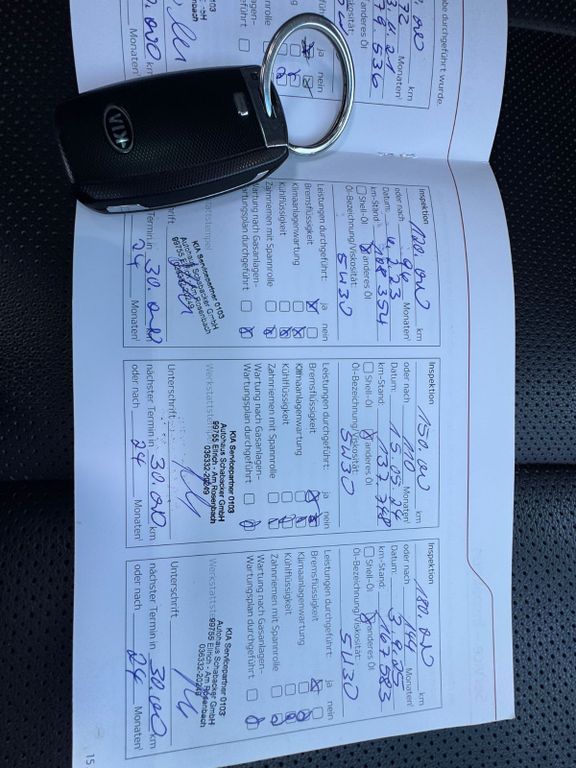 abe durchgeführt wurde.
km
Monaten¹
77536
ja nein
km
Monaten¹
KIA
Inspektion 120.000 km
oder nach 96 Monaten¹
Datum:
km-Stand: 108 354
Shell-Öl anderes Öl
Öl-Bezeichnung/Viskosität:
5W30
Leistungen durchgeführt: ja nein
Bremsflüssigkeit
Klimaanlagenwartung
Kühlflüssigkeit
Zahnriemen mit Spannrolle
Wartung nach Gasanlagen-
Wartungsplan durchgeführt
KIA Servicepartner 0103
Autohaus Schabacker GmbH
99755 Ellrich - Am Rosenbach
Termin in 30.000 km
24 Monaten¹
Inspektion 150.000 km
oder nach 110 Monaten¹
Datum: 15.05.24
km-Stand: 137 748
Shell-Öl anderes Öl
Öl-Bezeichnung/Viskosität:
5W30
Leistungen durchgeführt: ja nein
Bremsflüssigkeit
Klimaanlagenwartung
Kühlflüssigkeit
Zahnriemen mit Spannrolle
Wartung nach Gasanlagen-
Wartungsplan durchgeführt
Werkstattstempel
KIA Servicepartner 0103
Autohaus Schabacker GmbH
99755 Ellrich - Am Rosenbach
036332-20249
Unterschrift
nächster Termin in 30.000 km
oder nach 24 Monaten¹
Inspektion 180.000 km
oder nach 144 Monaten¹
Datum: 3.9.25
km-Stand: 167583
Shell-Öl anderes Öl
Öl-Bezeichnung/Viskosität:
5W30
Leistungen durchgeführt: ja nein
Bremsflüssigkeit
Klimaanlagenwartung
Kühlflüssigkeit
Zahnriemen mit Spannrolle
Wartung nach Gasanlagen-
Wartungsplan durchgeführt
KIA Servicepartner 0103
Autohaus Schabacker GmbH
99755 Ellrich - Am Rosenbach
036332-20249
Unterschrift
nächster Termin in 30.000 km
oder nach 24 Monaten¹
15